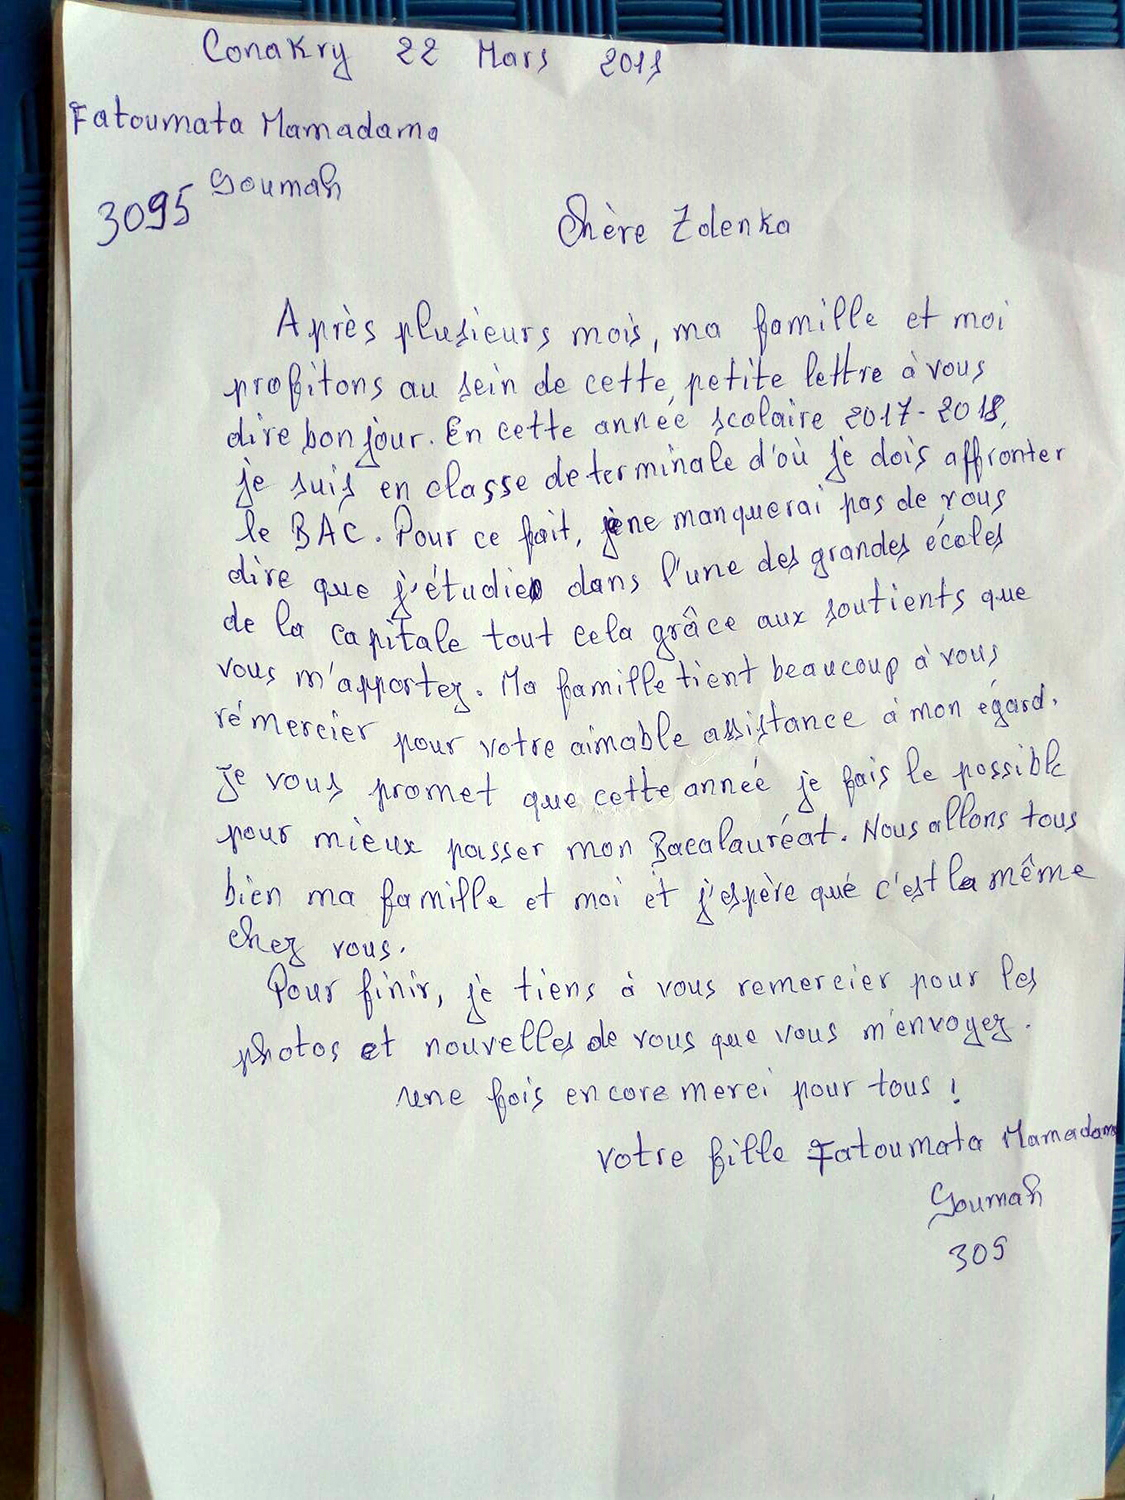 Conakry 22 Mars 2018
Fatoumata Mamadama
Soumah
3095
Chère Zdenka
Après plusieurs mois, ma famille et moi
profitons au sein de cette petite lettre à vous
dire bonjour. En cette année scolaire 2017-2018,
je suis en classe de terminale d'où je dois affronter
le BAC. Pour ce fait, je ne manquerai pas de vous
dire que j'étudie dans l'une des grandes écoles
de la capitale tout cela grâce aux soutients que
vous m'apportez. Ma famille tient beaucoup à vous
rémercier pour votre aimable assistance à mon égard.
Je vous promet que cette année je fais le possible
pour mieux passer mon Bacalauréat. Nous allons tous
bien ma famille et moi et j'espère qué c'est la même
chez vous.
Pour finir, je tiens à vous remercier pour les
photos et nouvelles de vous que vous m'envoyez.
une fois encore merci pour tous !
Votre fille Fatoumata Mamadama
Soumah
309